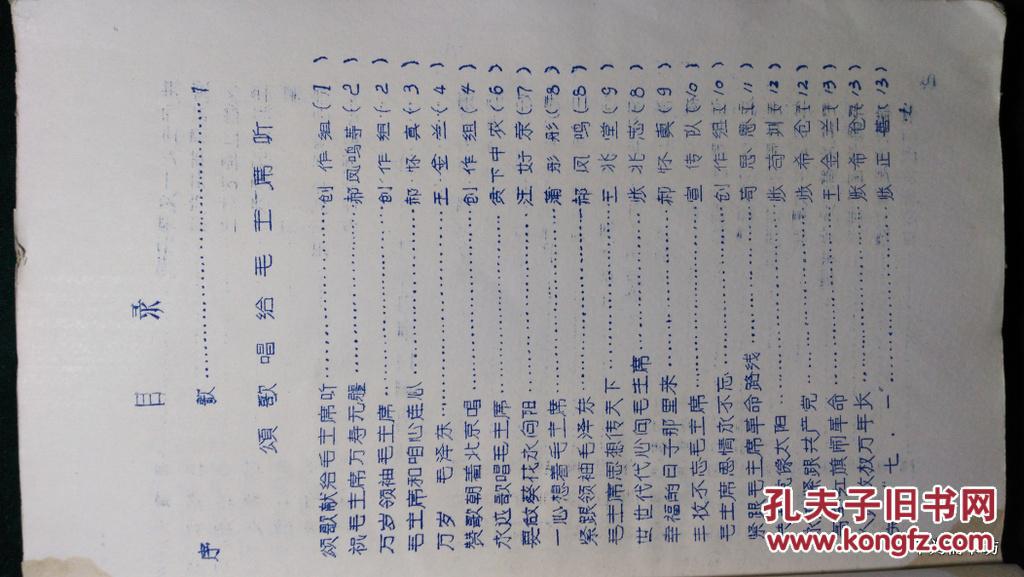 目 录
序 歌…………1
颂 歌 唱 给 毛 主 席 听
颂歌献给毛主席听…………创作组(1)
祝毛主席万寿无疆…………郝凤鸣等(2)
万岁领袖毛主席…………创作组(2)
毛主席和咱心连心…………郝怀真(3)
万岁 毛泽东…………王金兰(4)
赞歌朝着北京唱…………创作组(4)
永远歌唱毛主席…………贫下中农(6)
要做葵花永向阳…………汪好荣(7)
一心想着毛主席…………萧彤彤(8)
紧跟领袖毛泽东…………郝凤鸣(8)
毛主席思想传天下…………王兆堂(9)
世世代代心向毛主席…………张兆志(8)
幸福的日子那里来…………郝怀真(9)
丰收不忘毛主席…………宣传队(10)
毛主席恩情永不忘…………创作组(10)
紧跟毛主席革命路线…………苟思恩(11)
像太阳…………张苟圳(12)
紧跟共产党…………张希仓(12)
红旗闹革命…………王金兰(13)
万年长…………张希仓(13)
七·一…………张正(13)
孔夫子旧书网
www.kongfz.com